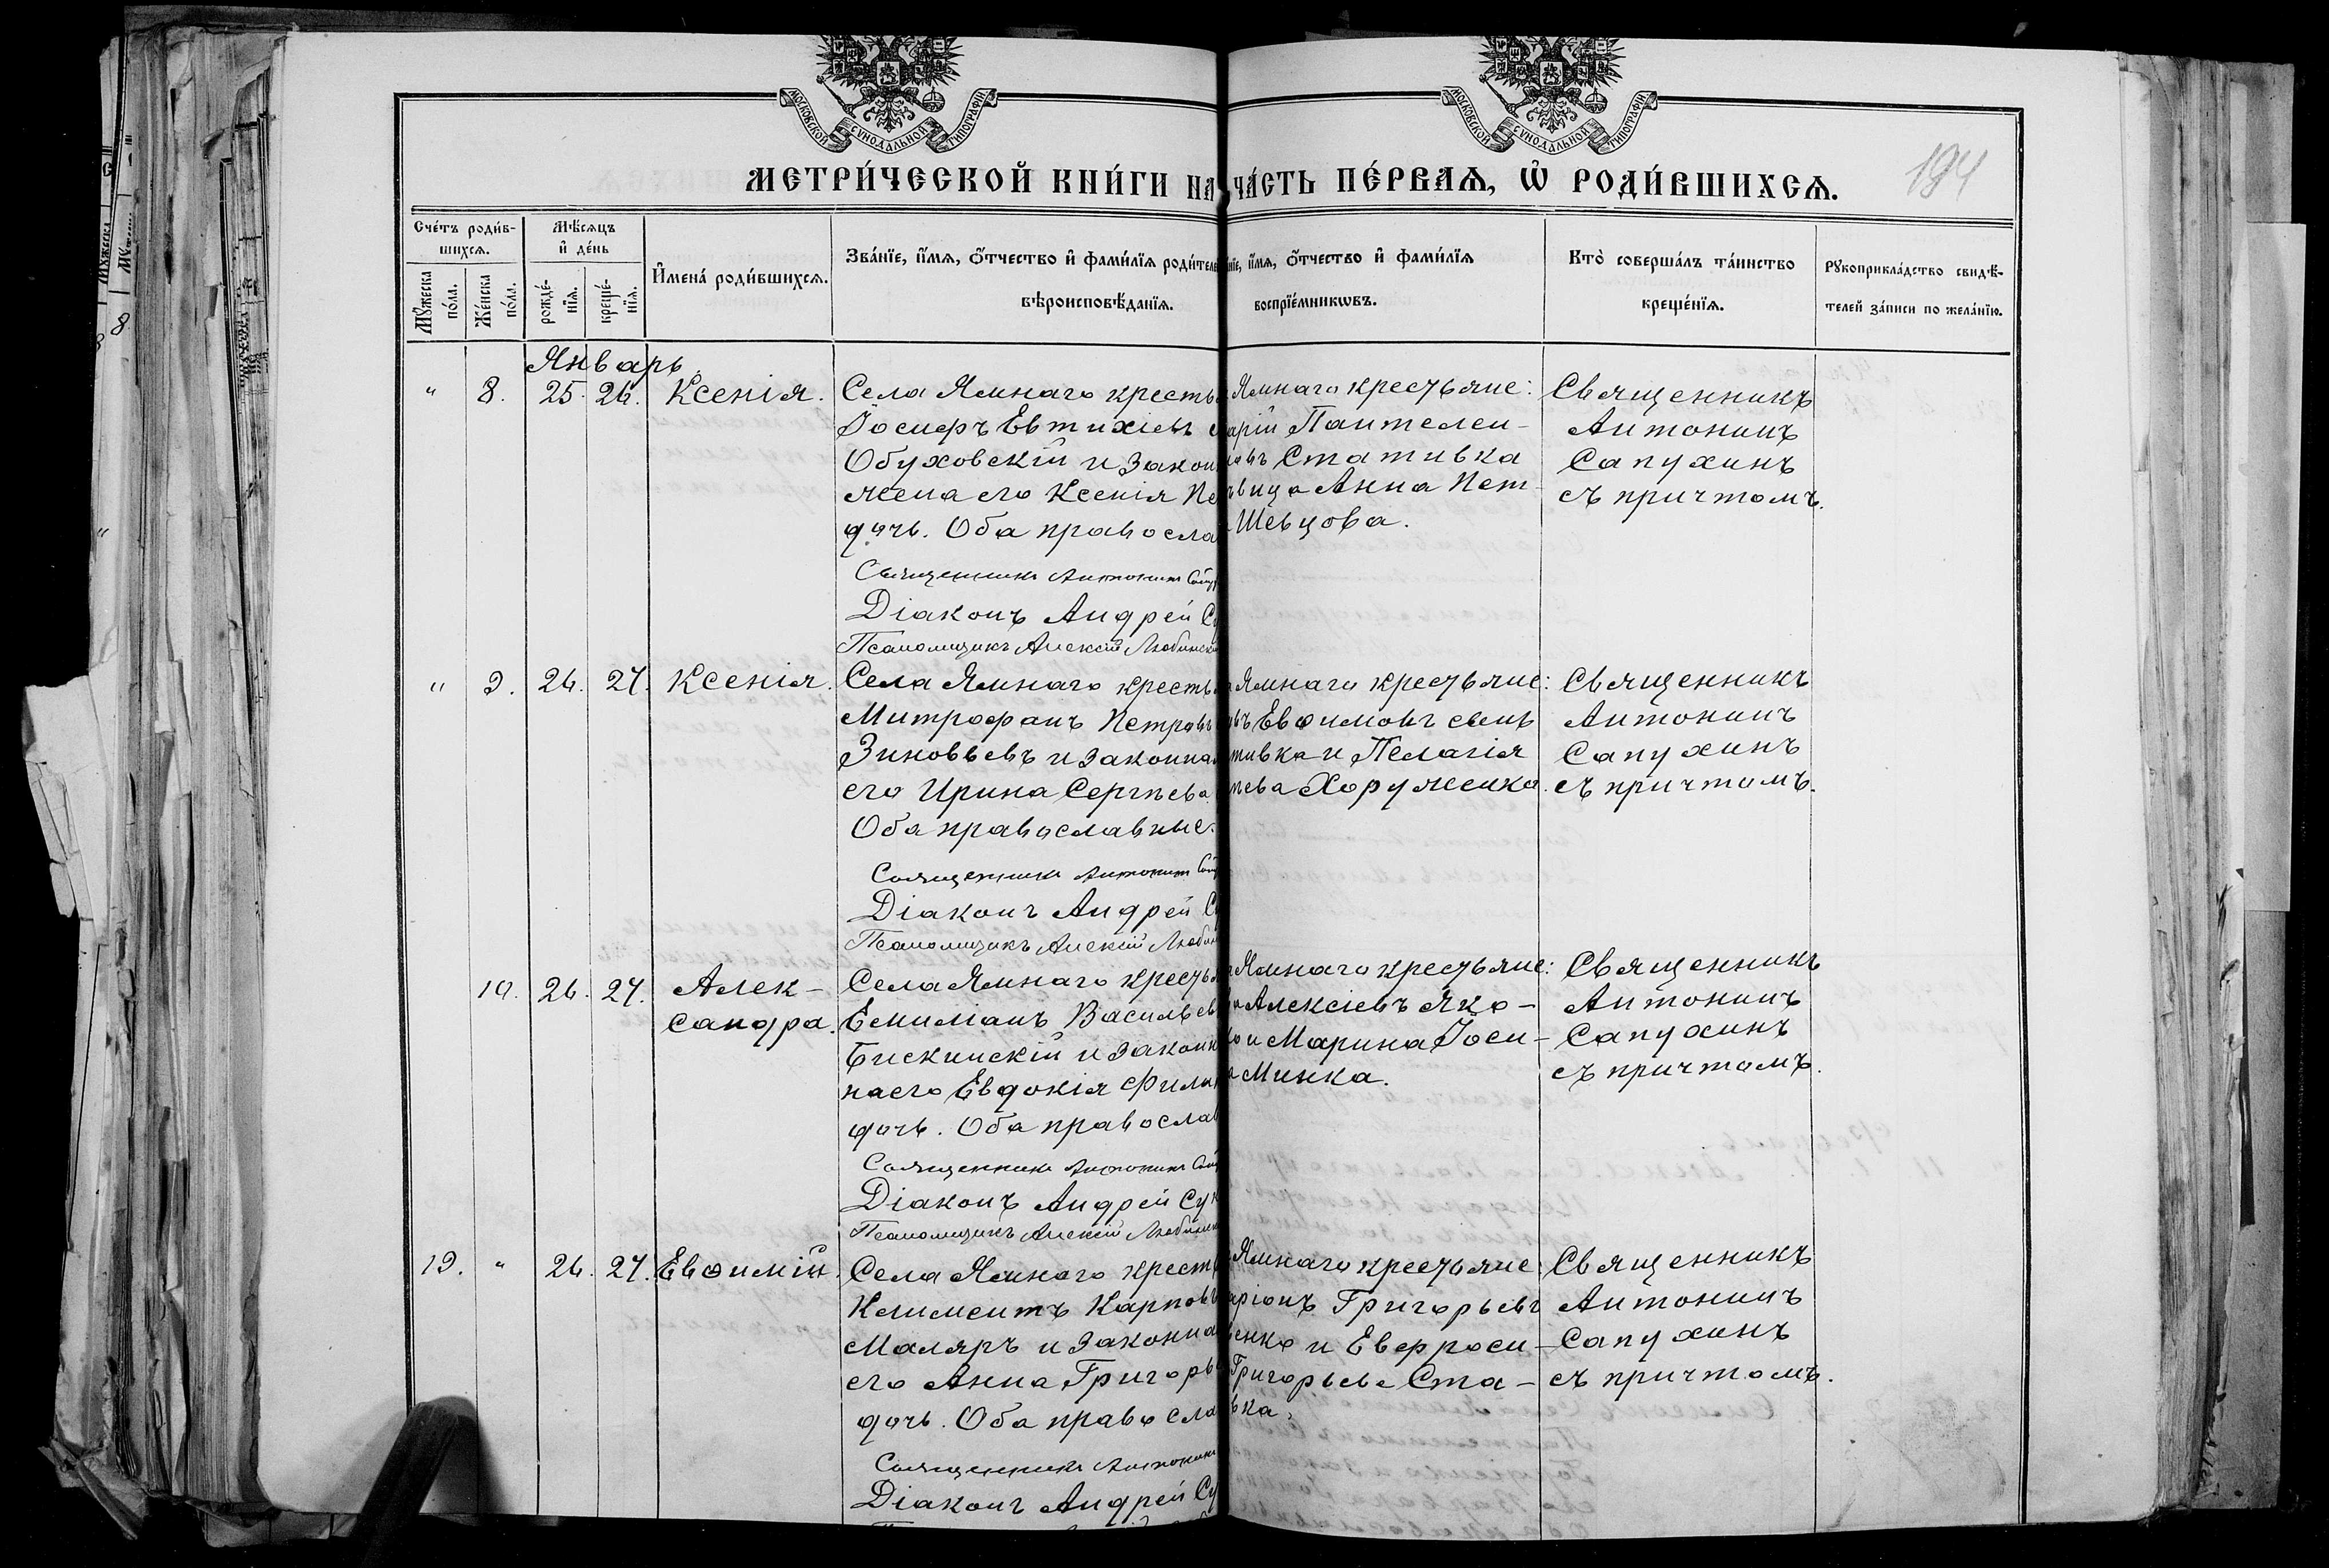 МОСКОВСКОЙ СУНОДАЛЬНОЙ ТИПОГРАФІИ
МОСКОВСКОЙ СУНОДАЛЬНОЙ ТИПОГРАФІИ
МЕТРИ́ЧЕСКОЙ КНИ́ГИ НА
ЧА́СТЬ ПЕ́РВАЯ, Ѡ РОДИ́ВШИХСЯ.
194
Сче́тъ роди́в-
шихся.
Мѣ́сяцъ
и҆ де́нь
Мꙋ́жеска по́ла.
Же́нска по́ла.
рожде́-
нїя.
креще́-
нїя.
И҆мена̀ роди́вшихся.
Зва́нїе, и҆́мя, ѻ҆́тчество и҆ фами́лїя роди́теле
вѣроисповѣ́данїя.
нїе, и҆́мя, ѻ҆́тчество и҆ фами́лїя
воспрїе́мникѡвъ.
Кто̀ соверша́лъ та́инство
креще́нїя.
Рꙋкоприкла́дство свидѣ́-
телей за́писи по жела́нїю.
Январь
" 8. 25. 26. Ксенія.
Села Ямнаго кресть
Іосифъ Евтихіевъ
Обуховскій и закон
жена его Ксенія Пе
дочь. Оба правосла
Священникъ Антонинъ
Діаконъ Андрей
Псаломщикъ Алексій
Ямнаго крестьяне:
арій Пантелеи-
овъ Стативка
вица Анна Пет-
Шевцова.
Священникъ
Антонинъ
Сапухинъ
съ причтомъ.
" 9. 26. 27. Ксенія.
Села Ямнаго кресть
Митрофанъ Петровъ
Зиновьевъ и законная
его Ирина Сергѣева.
Оба православные.
Священникъ Антонинъ
Діаконъ Андрей
Псаломщикъ Алексій
Ямнаго крестьяне:
въ Евѳимовъ
тивка и Пелагія
ѣева Хоруженко.
Священникъ
Антонинъ
Сапухинъ
съ причтомъ.
10. 26. 27. Алек-
сандра.
Села Ямнаго кресть
Емиліанъ Васильев
Бискинскій и закон
на его Евдокія Фили
дочь. Оба православ
Священникъ Антонинъ
Діаконъ Андрей Сук
Псаломщикъ Алексій
Ямнаго крестьяне:
Алексіевъ Яко-
и Марина Іоси-
а Минка.
Священникъ
Антонинъ
Сапухинъ
съ причтомъ.
19. " 26. 27. Евѳимій.
Села Ямнаго кресть
Климентъ Карповъ
Маляръ и законна
его Анна Григорь
дочь. Оба правосла
Священникъ Антонинъ
Діаконъ Андрей
Ямнаго крестьяне
аріонъ Григорьевъ
енко и Евфроси-
Григорьева Ста-
вка.
Священникъ
Антонинъ
Сапухинъ
съ причтомъ.